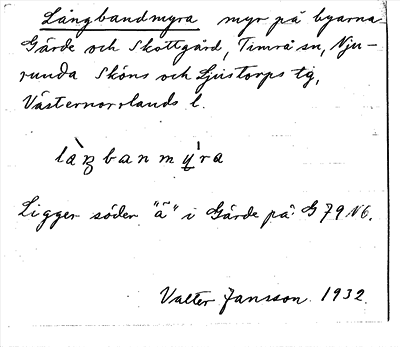 Långbandmyra myr på byarna
Gärde och Skottgård, Timrå sn, Nju-
runda Sköns och Ljustorps tg,
Västernorrlands l.
làŋbanmy̠ŕa
Ligger söder "ä" i Gärde på G 79 N6.
Valter Jansson 1932.